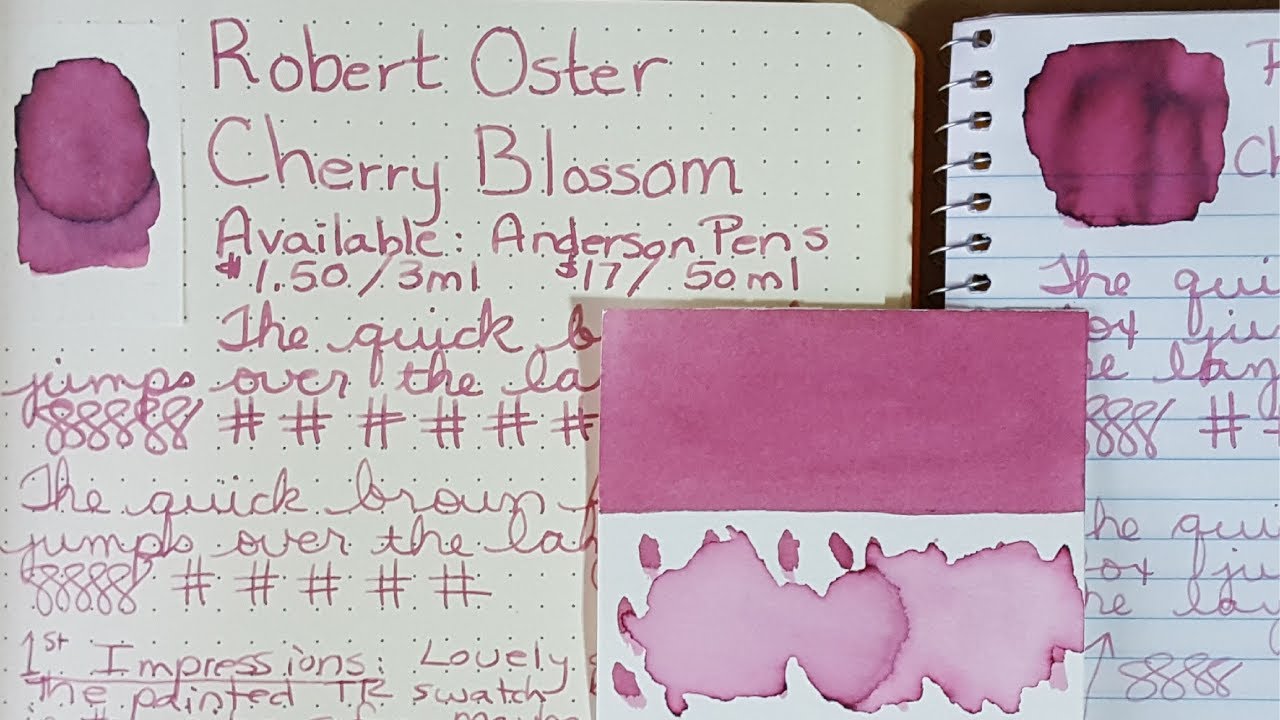 Robert Oster
Cherry Blossom
Available: Anderson Pens
$1.50/3ml $17/ 50ml
The quick b
jumps over the la
88888 # # # # # #
The quick brown f
jumps over the la
88888 # # # # #
1st Impressions: Lovely
The painted TR swatch
Ch
The qui
fox ju
he laz
888 #
he qui
fox ju
he lay
8888